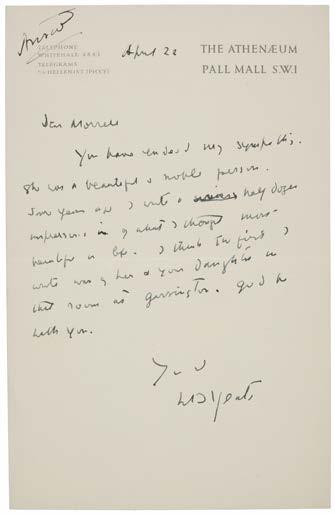 Answd
TELEPHONE
WHITEHALL 4843
TELEGRAMS
HELLENIST (PHY)
April 22
THE ATHENÆUM
PALL MALL S.W.1
Dear Morrell
You have indeed my sympathy.
She was a beautiful & noble person.
Some years ago I wrote a half dozen
impressions of what I thought most
beautiful in life. I think the first I
wrote was of her & your daughter in
that room at Garsington. God be
with you.
Yrs
WBYeats